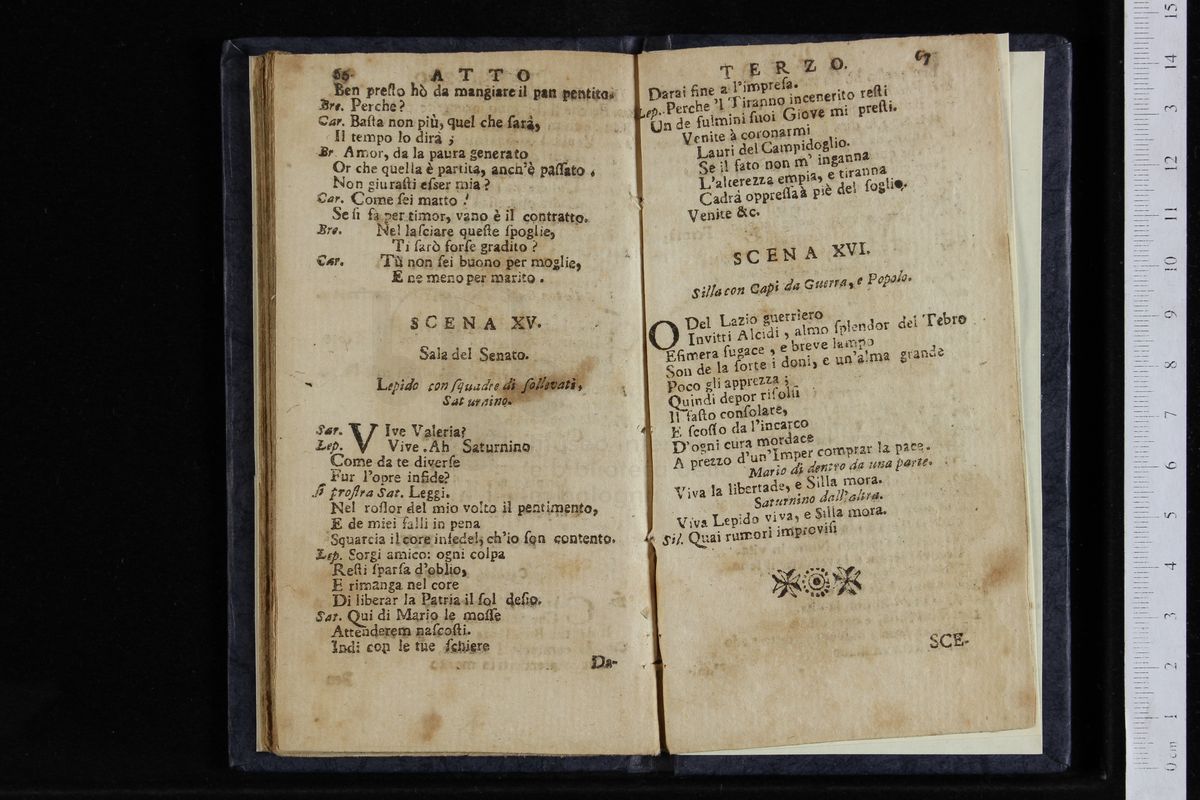 66 ATTO
Ben presto hò da mangiare il pan pentito.
Bre. Perche?
Car. Basta non più, quel che sarà,
Il tempo lo dirà ;
Br Amor, da la paura generato
Or che quella è partita, anch'è passato .
Non giurasti esser mia ?
Car. Come sei matto !
Se si fa per timor, vano è il contratto.
Bre. Nel lasciare queste spoglie,
Ti sarò forse gradito ?
Car. Tù non sei buono per moglie,
E ne meno per marito .
SCENA XV.
Sala del Senato.
Lepido con squadre di sollevati,
Saturnino.
Sat. VIve Valeria?
Lep. Vive. Ah Saturnino
Come da te diverse
Fur l'opre infide?
si prostra Sat. Leggi.
Nel rossor del mio volto il pentimento,
E de miei falli in pena
Squarcia il core infedel, ch'io son contento.
Lep. Sorgi amico: ogni colpa
Resti sparsa d'oblio,
E rimanga nel core
Di liberar la Patria il sol desio.
Sat. Qui di Mario le mosse
Attenderem nascosti.
Indi con le tue schiere
Da-
TERZO. 67
Darai fine a l'impresa.
Lep. Perche 'l Tiranno incenerito resti
Un de fulmini suoi Giove mi presti.
Venite à coronarmi
Lauri del Campidoglio.
Se il fato non m' inganna
L'alterezza empia, e tiranna
Cadrà oppressa à piè del soglio.
Venite &c.
SCENA XVI.
Silla con Capi da Guerra, e Popolo.
O Del Lazio guerriero
Invitti Alcidi, almo splendor del Tebro
Efimera fugace, e breve lampo
Son de la sorte i doni, e un'alma grande
Poco gli apprezza ;
Quindi depor risolsi
Il fasto consolare,
E scosso da l'incarco
D'ogni cura mordace
A prezzo d'un'Imper comprar la pace.
Mario di dentro da una parte.
Viva la libertade, e Silla mora.
Saturnino dall'altra.
Viva Lepido viva, e Silla mora.
Sil. Quai rumori improvisi
SCE-
0 cm 1 2 3 4 5 6 7 8 9 10 11 12 13 14 15